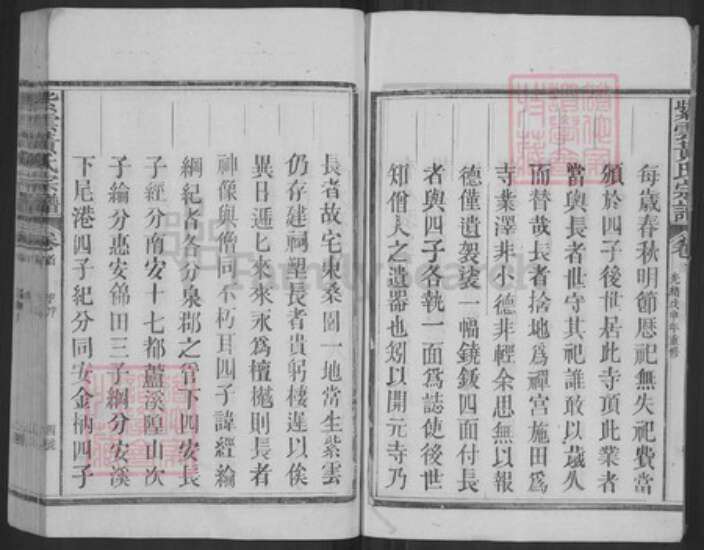 每歲春秋明節歷祀無失祀費當
頒於四子後世居此寺頂此業者
當與長者世守其祀誰敢以歲久
而替哉長者捨地為禪宮施田為
寺業澤非小德非輕余思無以報
德僅遺袈裟一幅鐃鈸四面付長
者與四子各執一面為誌使後世
知僧人之遺器也矧以開元寺乃
長者故宅東桑園一地常生紫雲
仍存建祠塑長者貴躬棲遲以俟
異日遞匕來來永為檀樾則長者
神像與僧同不朽耳四子諱經綸
綱紀者各分泉郡之管下四安長
子經分南安十七都蘆溪隍山次
子綸分惠安錦田三子綱分安溪
下尾港四子紀分同安金柄四子
紫雲黃氏宗譜
卷
光緒戊申年重修
紫雲黃氏宗譜
卷首
FamilySearch